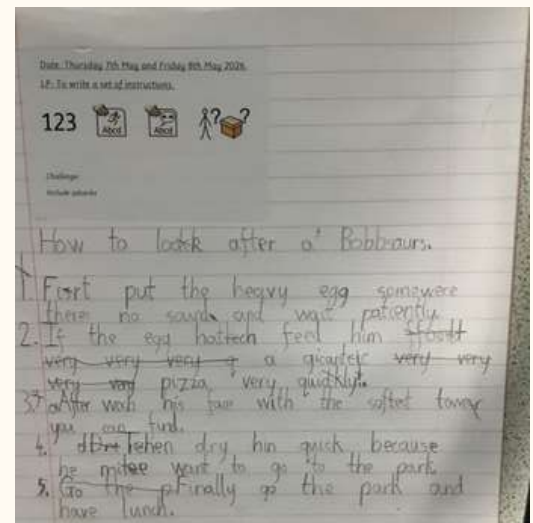 Date: Thursday 7th May and Friday 8th May 2026.
LP: To write a set of instructions.
123
Abcd Abcd ? ?
Challenge:
Include adverbs
How to look after a Bobbsaurs.
1. First put the heavy egg somewere
there no sound and wait patiently.
2. If the egg hattech feed him
very very very a gigantic very very
very very pizza very quickly.
3. After wash his face with the softet
you can find.
4. Then dry him quick because
he want to go to the park
5. Go the Finally go the park and
have lunch.